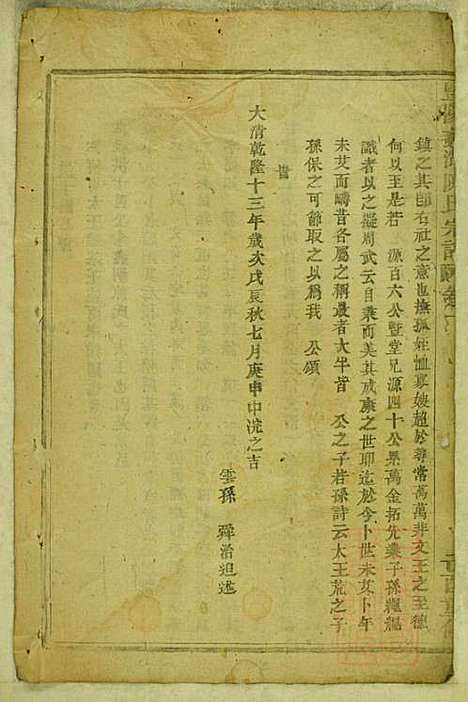 鎮之其即右社之意也撫孤姪恤寡嫂超於尋常萬萬非文王之至德
何以至是若　源百六公暨堂兄源四十公累萬金拓先業子孫繩繩
識者以之擬周武云自乗而美其成康之世耶迄於今卜世未艾卜年
未艾而疇昔各屬之稱最者大半皆　公之子若孫詩云太王荒之子
孫保之可節取之以爲我　公頌
旹
大清乾隆十三年歲次戊辰秋七月庚申中浣之吉
雲孫　舜治追述